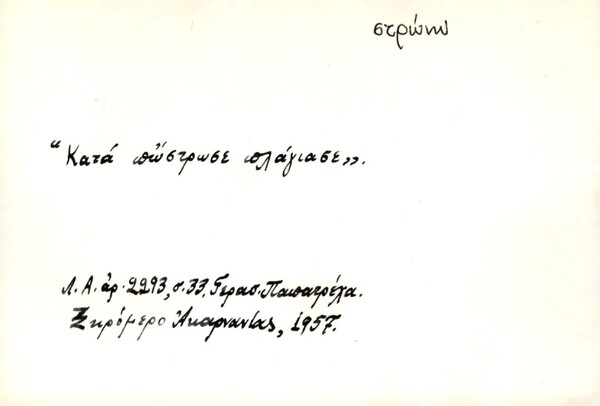 στρώνω
“Κατά πὤστρωσε πλάγιασε„.
Λ.Α. ἀρ. 2293, σ. 33, Γερασ. Παπατρέχα.
Ξηρόμερο Ἀκαρνανίας, 1957.